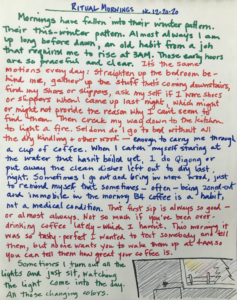 RITUAL MORNINGS
12.20.20
Mornings have fallen into their winter pattern.
Their this-winter pattern. Almost always I am
up long before dawn, an old habit from a job
that required me to rise at 3AM. Those early hours
are so peaceful and clear. It's the same
motions every day: straighten up the bedroom be-
hind me, gather up the stuff that's coming downstairs,
find my shoes or slippers, ask myself if I wore shoes
or slippers when I came up last night, which might
or might not provide the reason why I can't seem to
find them. Then creak my way down to the kitchen
to light a fire. Seldom do I go to bed without all
the dry kindling & other wood enough to carry me through
a cup of coffee. When I catch myself staring at
the water that hasn't boiled yet, I do Qigong or
put away the clean dishes left out to dry last
night. Sometimes I go out and bring in more wood, just
to remind myself that sometimes – often – being zoned-out
and immobile in the morning B4 coffee is a habit,
not a medical condition. That first sip is always so good –
or almost always. Not so much if you've been over-
drinking coffee lately – which I haven't. Two mornings it
was so tasty, perfect I wanted to text somebody and tell
them, but no one wants you to wake them up at 4AM so
you can tell them how great your coffee is.
Sometimes I turn out all the
lights and just sit, watching
the light come into the day.
All those changing colors.